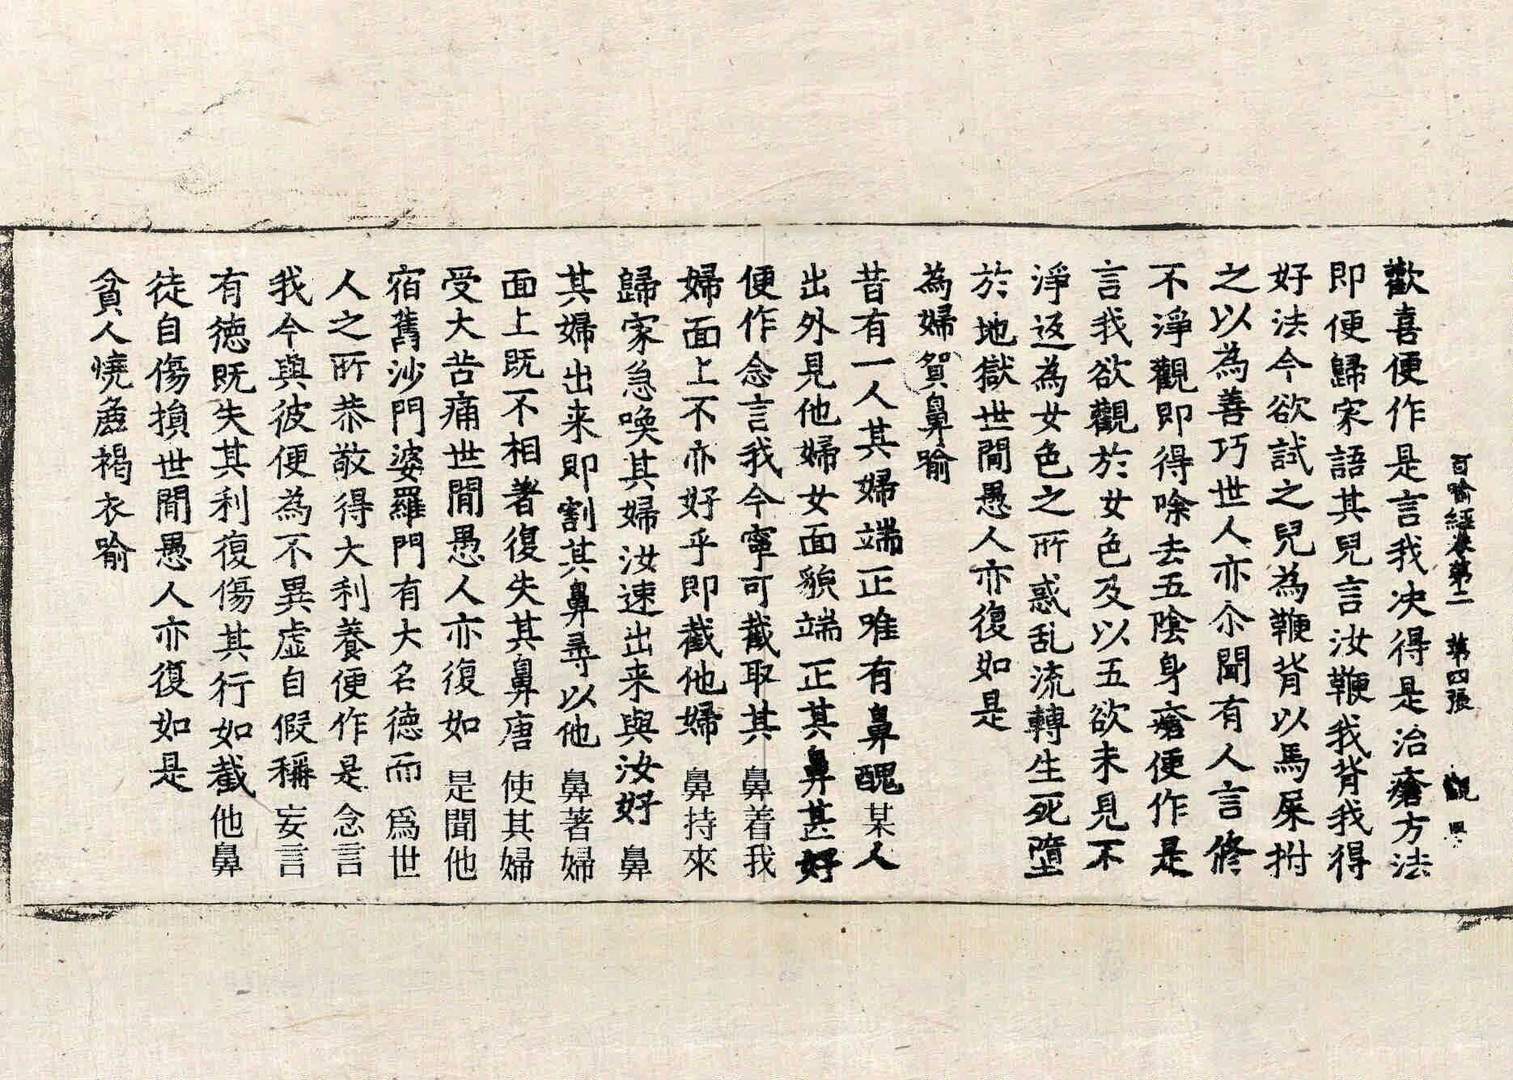 百喻經卷第二　第四張　觀
歡喜便作是言我决得是治瘡方法
即便歸家語其兒言汝鞭我背我得
好法今欲試之兒為鞭背以馬屎拊
之以為善巧世人亦尒聞有人言修
不淨觀即得除去五陰身瘡便作是
言我欲觀於女色及以五欲未見不
淨返為女色之所惑乱流轉生死墮
於地獄世間愚人亦復如是
為婦貿鼻喻
昔有一人其婦端正唯有鼻醜某人
出外見他婦女面貌端正其鼻甚好
便作念言我今寧可截取其鼻着我
婦面上不亦好乎即截他婦鼻持來
歸家急喚其婦汝速出来與汝好鼻
其婦出来即割其鼻尋以他鼻著婦
面上既不相著復失其鼻唐使其婦
受大苦痛世間愚人亦復如是聞他
宿舊沙門婆羅門有大名德而爲世
人之所恭敬得大利養便作是念言
我今與彼便為不異虛自假稱妄言
有德既失其利復傷其行如截他鼻
徒自傷損世間愚人亦復如是
貧人燒麁褐衣喻